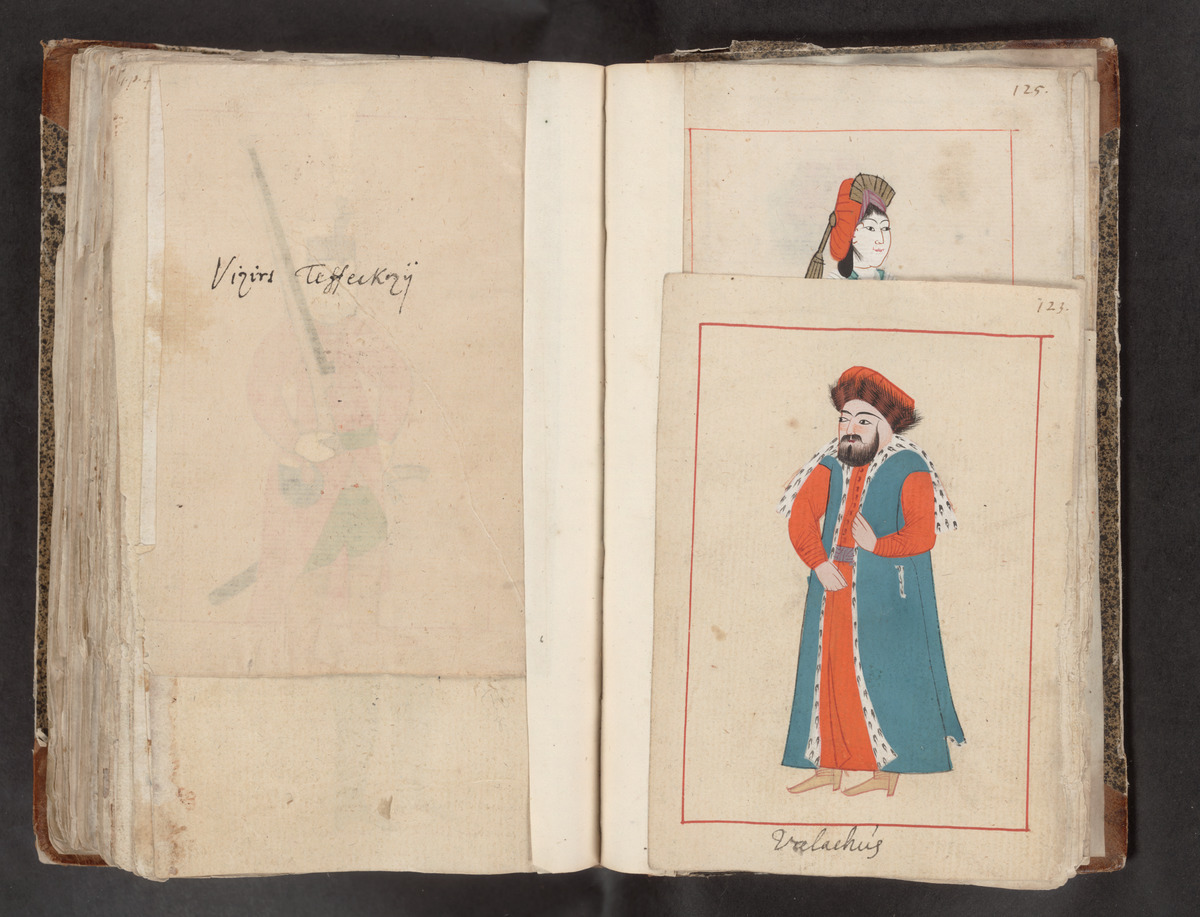 Vizirs Teffeckzÿ
125.
123.
Valachús